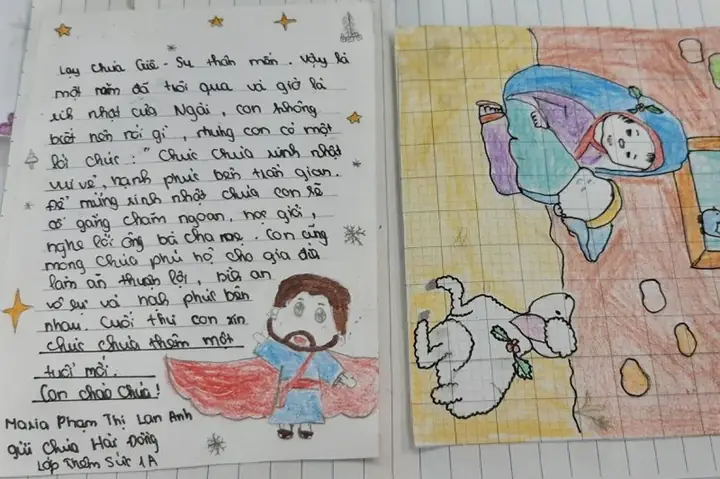 Lạy Chúa Giê - Su thân mến. Vậy là
một năm đã trôi qua và giờ là
sinh nhật của Ngài, con không
biết nên nói gì, nhưng con có một
lời chúc: "Chúc Chúa sinh nhật
vui vẻ, hạnh phúc bên trần gian.
Để mừng sinh nhật Chúa con sẽ
cố gắng chăm ngoan, học giỏi,
nghe lời ông bà cha mẹ. Con cũng
mong Chúa phù hộ cho gia đình
làm ăn thuận lợi, bình an
vô sự và hạnh phúc bên
nhau. Cuối thư con xin
chúc Chúa thêm một
tuổi mới.
Con chào Chúa!
Maria Phạm Thị Lan Anh
gửi Chúa Hài Đồng
Lớp Thêm Sức 1A